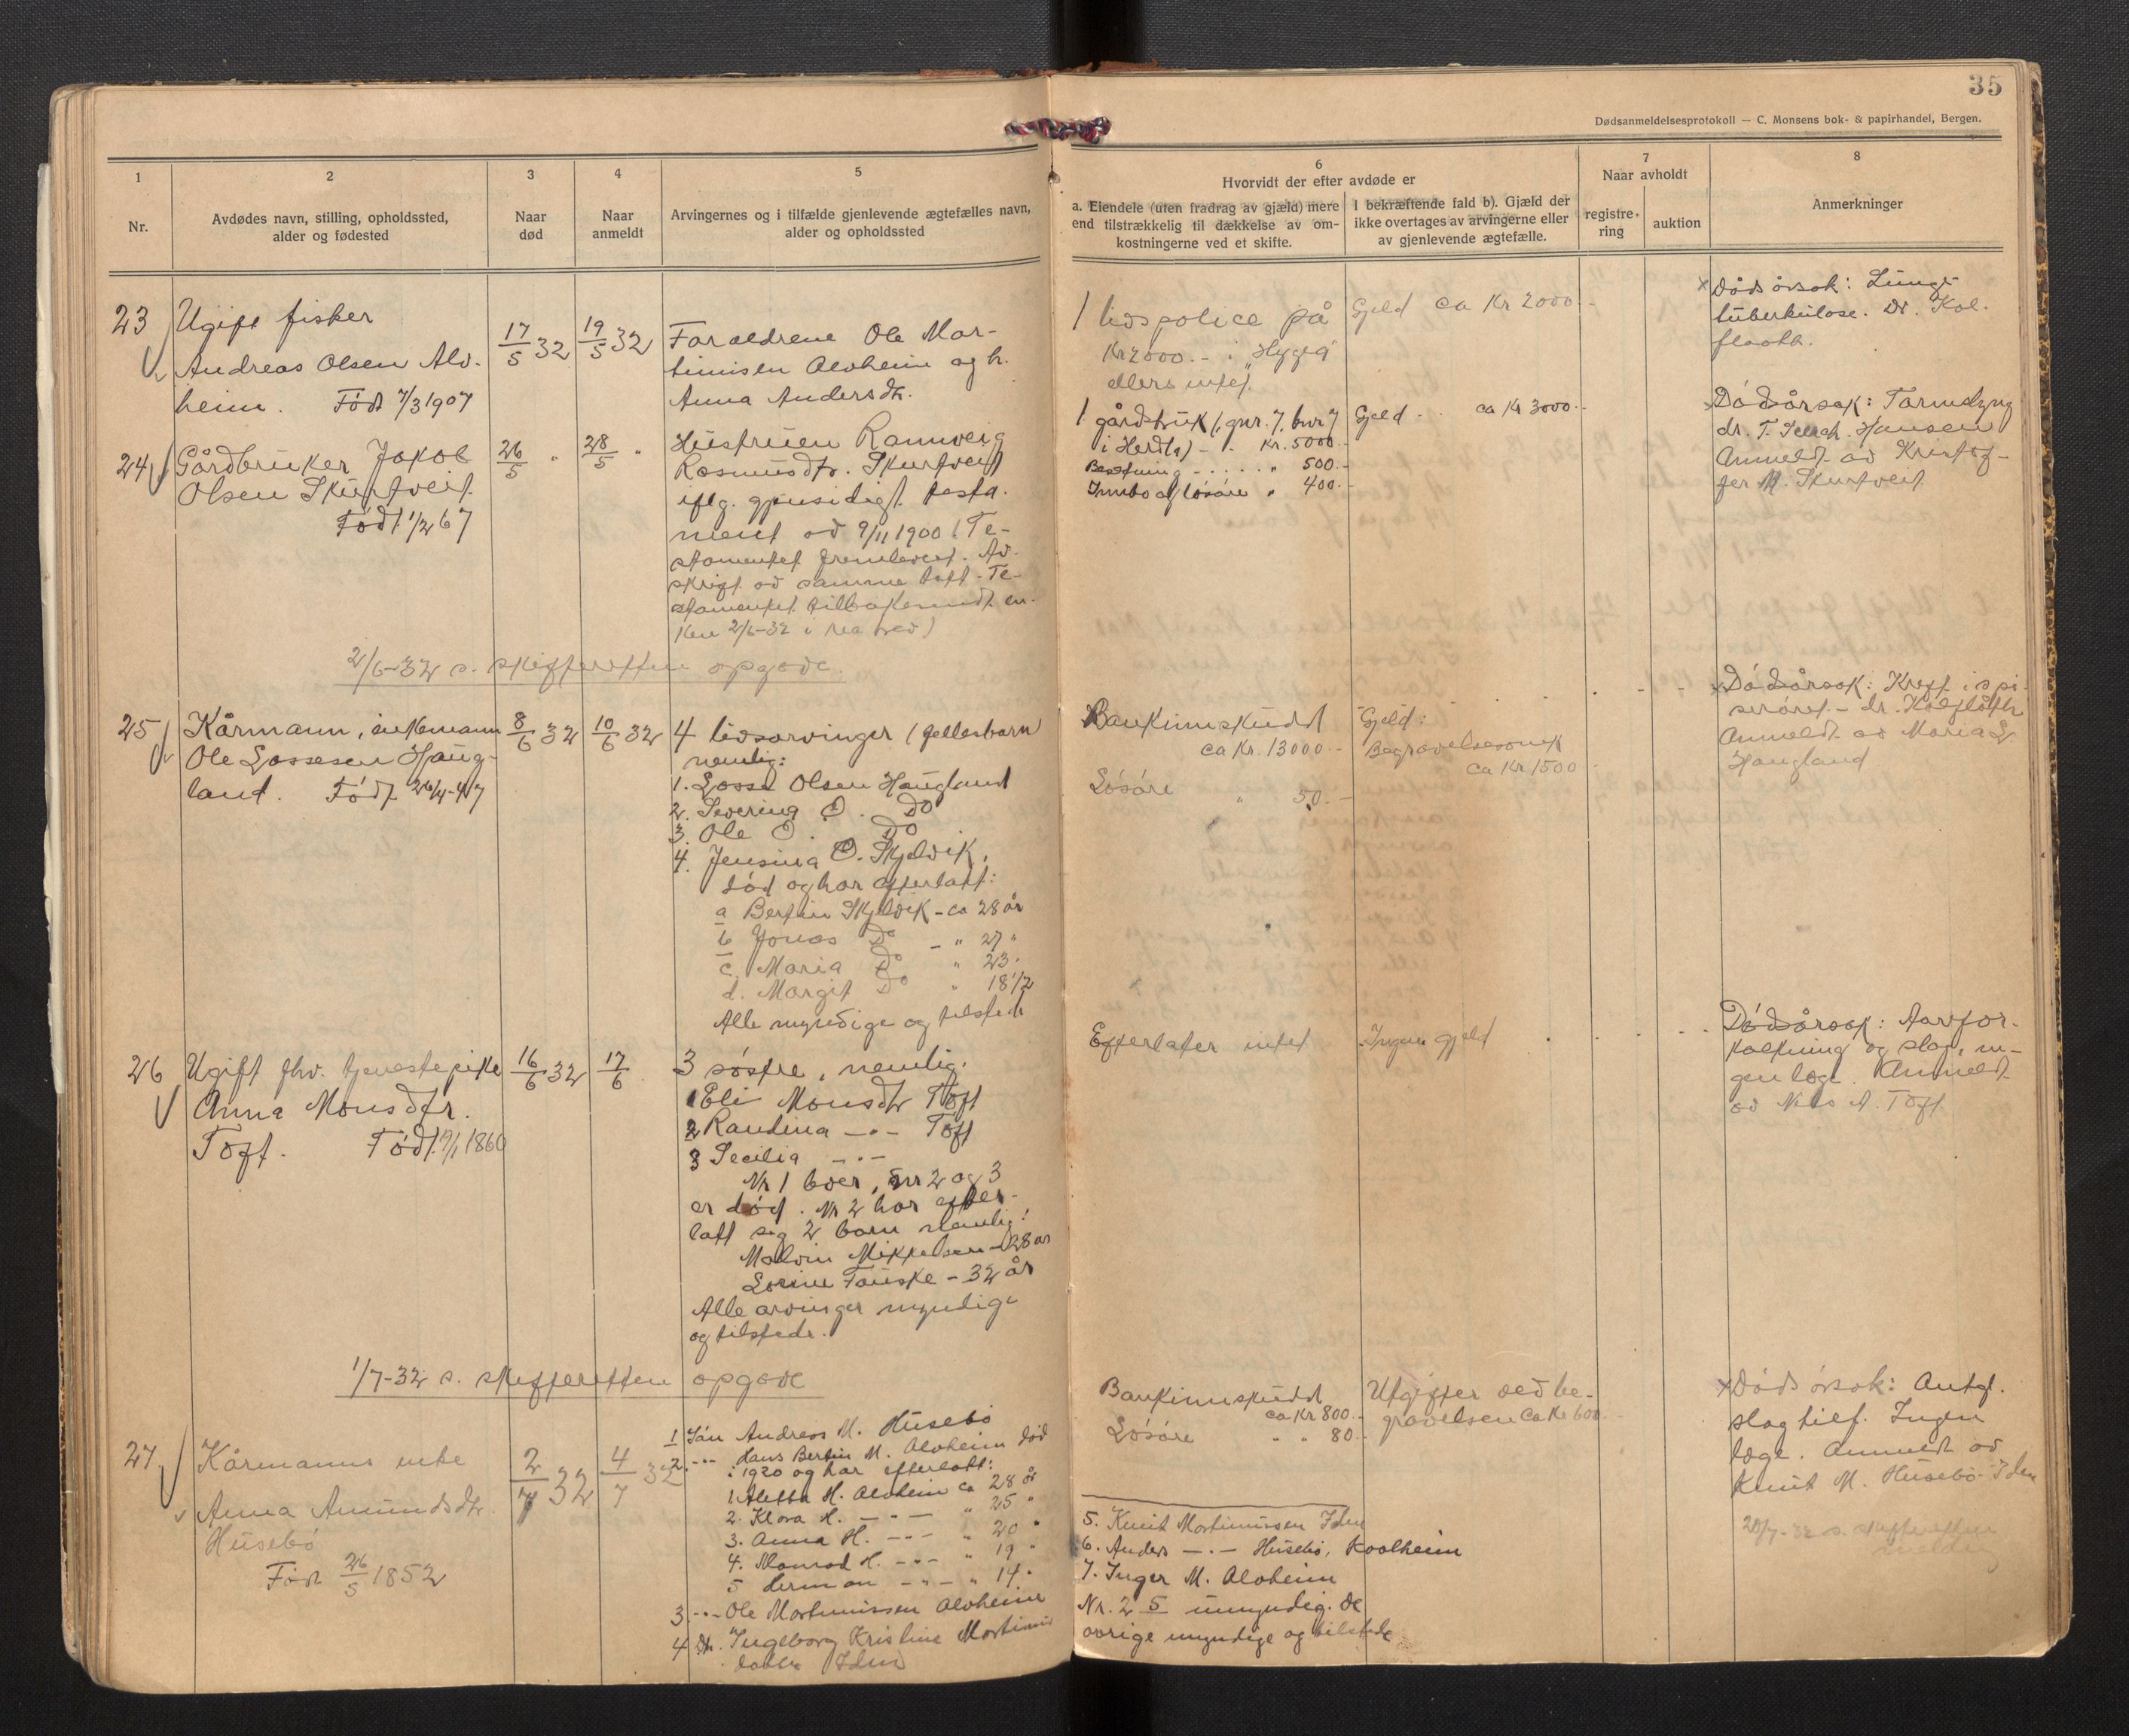 35
Dødsanmeldelsesprotokoll — C. Monsens bok- & papirhandel, Bergen.
1
Nr.
2
Avdødes navn, stilling, opholdssted,
alder og fødested
3
Naar
død
4
Naar
anmeldt
5
Arvingernes og i tilfælde gjenlevende ægtefælles navn,
alder og opholdssted
6
Hvorvidt der efter avdøde er
a. Eiendele (uten fradrag av gjæld) mere
end tilstrækkelig til dækkelse av om-
kostningerne ved et skifte.
I bekræftende fald b). Gjæld der
ikke overtages av arvingerne eller
av gjenlevende ægtefælle.
7
Naar avholdt
registre-
ring
auktion
8
Anmerkninger
23
Ugift fisker
Andreas Olsen Alv-
heim. Født 7/3 1907
17/5 32
19/5 32
Foraeldrene Ole Mor-
timisen Alvheim og h.
Anna Andersdtr.
1 livspolice på
Kr 2000.- i "Hygea"
ellers intet.
Gjeld ca Kr 2000.-
Dødsårsak: Lunge-
tuberkulose. Dr. Kol-
flaath.
24
Gårdbruker Jakob
Olsen Skurtveit
Født 1/2 67
26/5 "
28/5 "
Hustruen Rannveig
Rasmusdtr. Skurtveit
iflg. gjensidigt testa-
ment av 9/11 1900. (Te-
stamentet fremlevert. Av-
skrift av samme tatt. Te-
stamentet tilbakesendt en-
ken 2/6-32 i rek brev)
1 gårdsbruk (gnr. 7, bnr 7
i Herdla) - Kr. 5000.-
Besetning - - - - - " 500.-
Innbo og løsøre " 400.-
Gjeld - - ca Kr 3000.-
Dødsårsak: Tarmslyng
dr. T. Hansen
Anmeldt av Kristof-
fer M. Skurtveit
2/6-32 s. skifteretten opgave.
25
Kårmann, enkemann
Ole Lassesen Haug-
land. Født 26/4-47
8/6 32
10/6 32
4 livsarvinger (fellesbarn)
nemlig:
1. Lasse Olsen Haugland
2. Severina O. Do
3. Ole O. Do
4. Jensina O. Skjelvik,
død og har efterlatt:
a Bertin Skjelvik - ca 28 år
b Jonas Do - " 27 "
c. Maria Do " 23 "
d. Margit Do " 18 1/2
Alle myndige og tilstede
Bankinnskudd
ca Kr. 13000.-
Løsøre " 50.-
Gjeld:
Begravelsesomk
ca Kr 1500
Dødsårsak: Kreft i spi-
serøret. - dr. Kolflaath
Anmeldt av Maria L.
Haugland
26
Ugift fhv. tjenestepike
Anna Monsdtr.
Toft. Født 9/1 1860
16/6 32
17/6
3 søstre, nemlig:
1 Eli Monsdtr Toft
2 Randina -"- Toft
3 Secilia -"-
Nr 1 lever, nr 2 og 3
er død. Nr 2 har efter-
latt sig 2 barn nemlig:
Malvin Mikkelsen - 28 år
Lovine Fauske - 32 år
Alle arvinger myndige
og tilstede.
Efterlater intet
Ingen gjeld
Dødsårsak: Aarefor-
kalkning og slag, in-
gen læge. Anmeldt
av Nils A. Toft
1/7-32 s. skifteretten opgave
27
Kårmanns enke
Anna Amundsdtr.
Husebø
Født 26/5 1852
2/7 32
4/7 32
1 Søn Andreas M. Husebø
2. -"- Hans Bertin M. Alvheim død
i 1920 og har efterlatt:
1. Aletta H. Alvheim ca 28 år
2. Klara H. -"- " 25 "
3. Anna H. -"- " 20 "
4. Konrad H. -"- " 19 "
5 Herman -"- " 14 "
3. -"- Ole Mortinussen Alvheim
4 Dtr. Ingeborg Kristine Mortinus
datter Iden
Bankinnskudd
ca Kr 800.-
Løsøre " " 80.-
Utgifter ved be-
gravelsen ca Kr 600.-
5. Knut Mortinussen Iden
6. Anders -"- Husebø, Koolheim
7. Inger M. Alvheim
Nr. 2 5 umyndig. De
øvrige myndige og tilstede
Dødsårsak: Antgl.
slagtilf. Ingen
læge. Anmeldt av
Knut M. Husebø-Iden